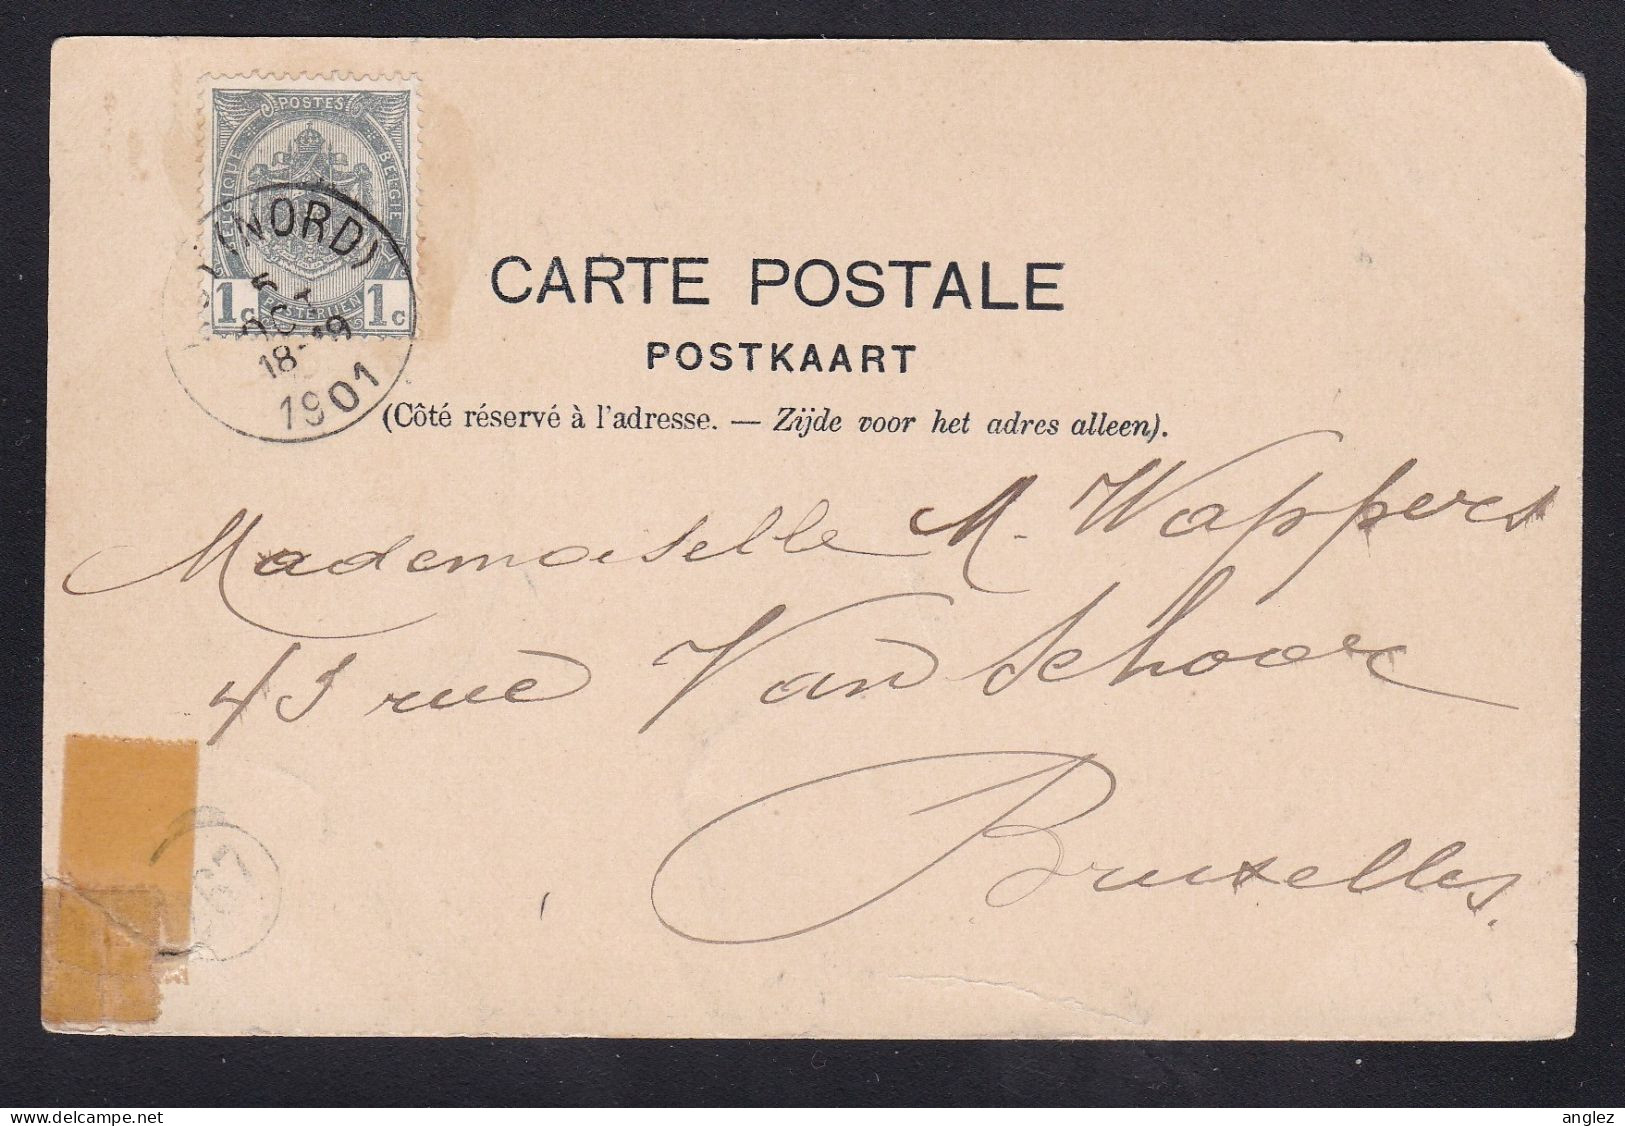 POSTES
BELGIQUE
BELGIE
1c POSTERIJEN 1c
(NORD)
5
OCT
18-19
1901
CARTE POSTALE
POSTKAART
(Côté réservé à l'adresse. — Zijde voor het adres alleen).
Mademoiselle M. Wappers
43 rue Van Schoor
Bruxelles.
67
www.delcampe.net
anglez